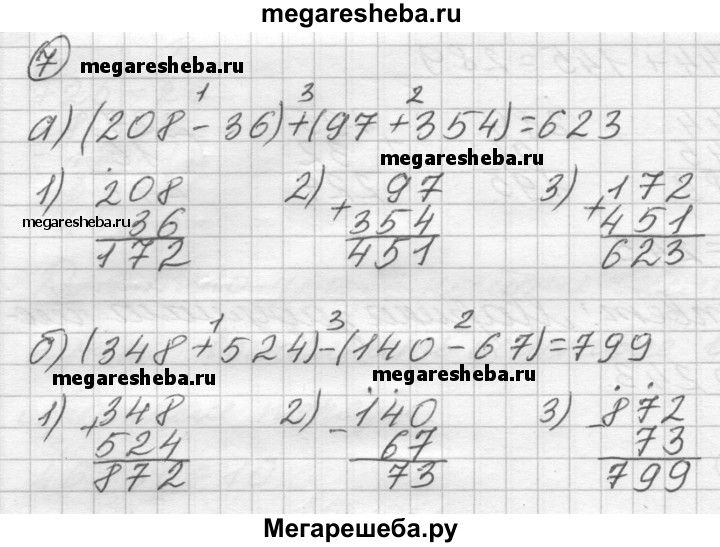 megaresheba.ru
7 megaresheba.ru
1 3 2
а) (208 - 36) + (97 + 354) = 623
megaresheba.ru
1) 208 2) 97 3) 172
megaresheba.ru 36 + 354 + 451
172 451 623
1 3 2
б) (348 + 524) - (140 - 67) = 799
megaresheba.ru megaresheba.ru
1) + 348 2) - 140 3) - 872
524 67 73
872 73 799
Мегарешеба.ру